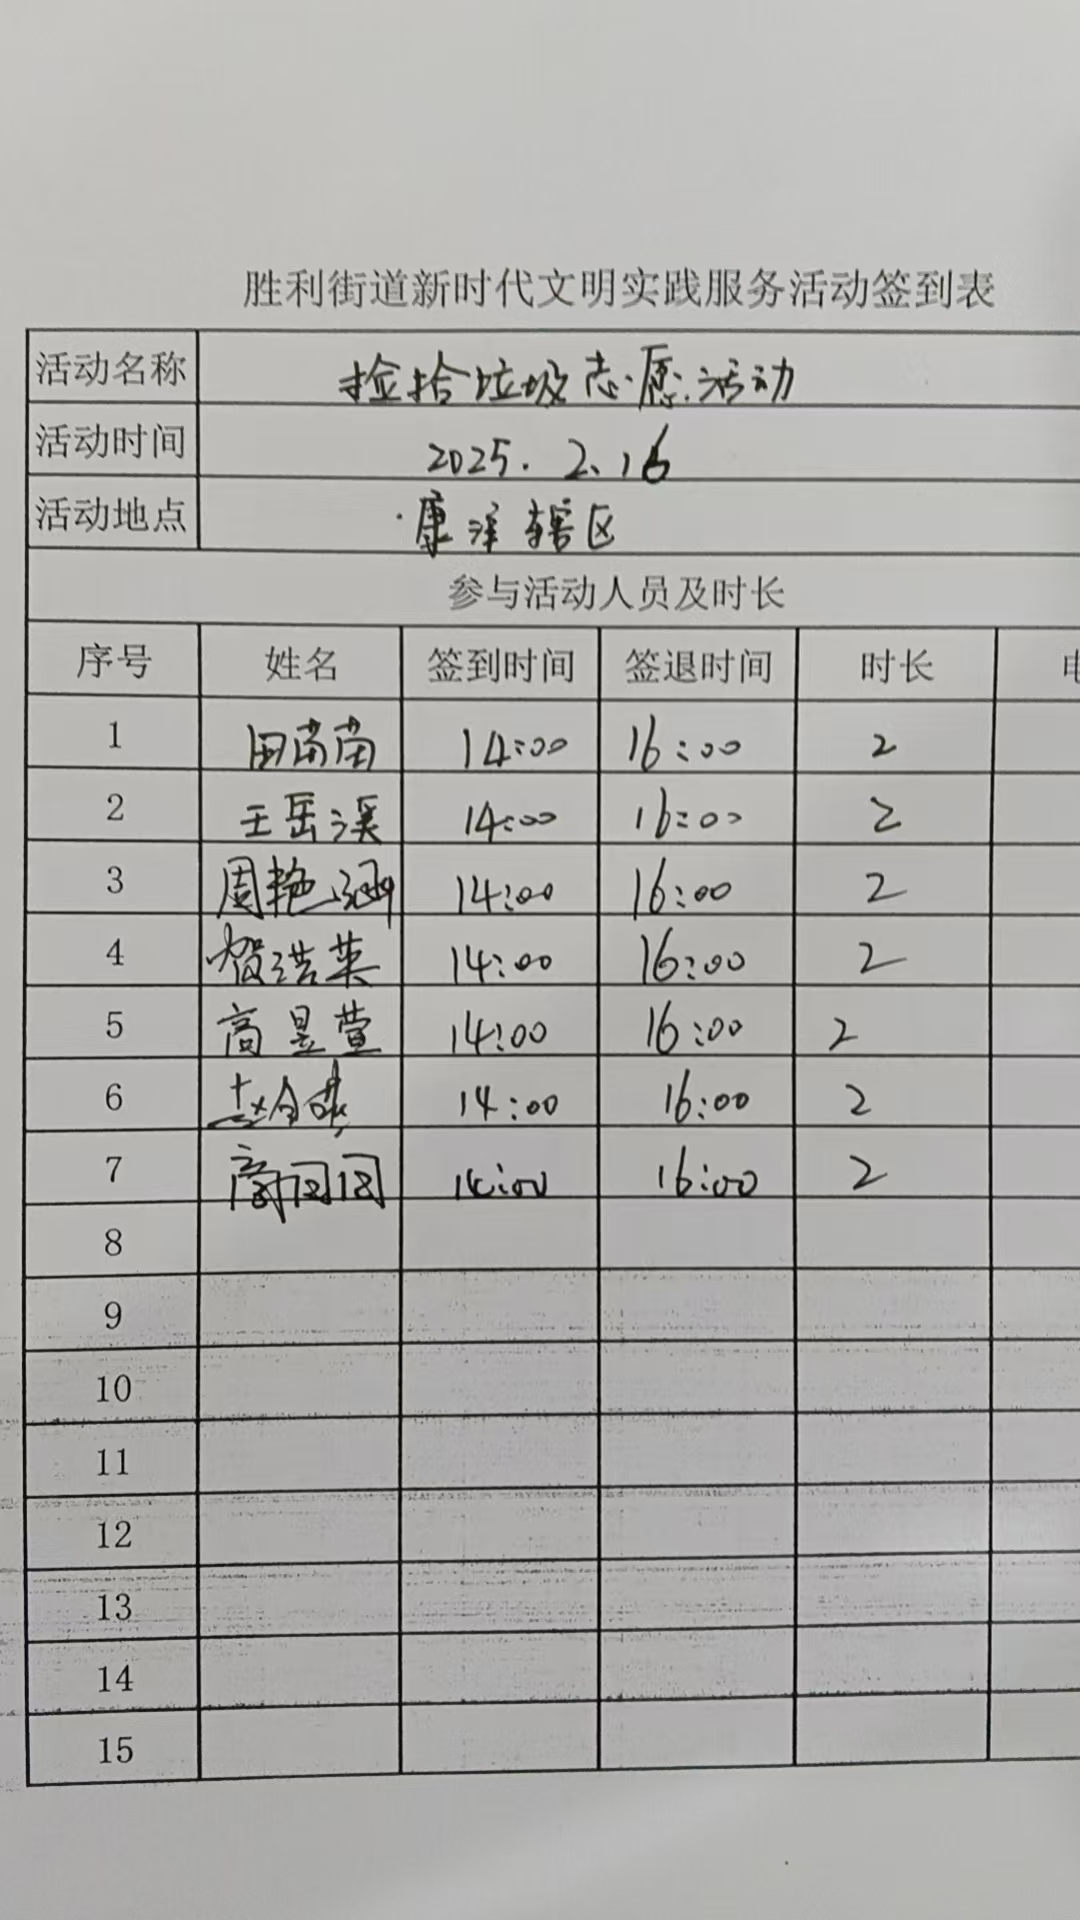 胜利街道新时代文明实践服务活动签到表
活动名称 捡拾垃圾志愿活动
活动时间 2025.2.16
活动地点 康洋辖区
参与活动人员及时长
序号 姓名 签到时间 签退时间 时长
1 田苗苗 14:00 16:00 2
2 王岳溪 14:00 16:00 2
3 周艳涵 14:00 16:00 2
4 14:00 16:00 2
5 高昱萱 14:00 16:00 2
6 14:00 16:00 2
7 14:00 16:00 2
8
9
10
11
12
13
14
15